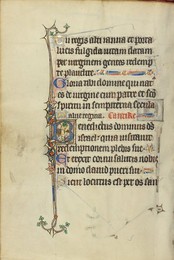 tu regis alti ianua et porta
lucis fulgida vitam datam
per virginem gentes redemp
te plaudite.
Gloria tibi domine qui nat
es de virgine cum patre et sco
spiritu in sempiterna secula
Benedictus dominus deus
israel quia visitavit
redemptionem plebis sue
Et erexit cornu salutis nobis
in domo david pueri sui
Sicut locutus est per os san